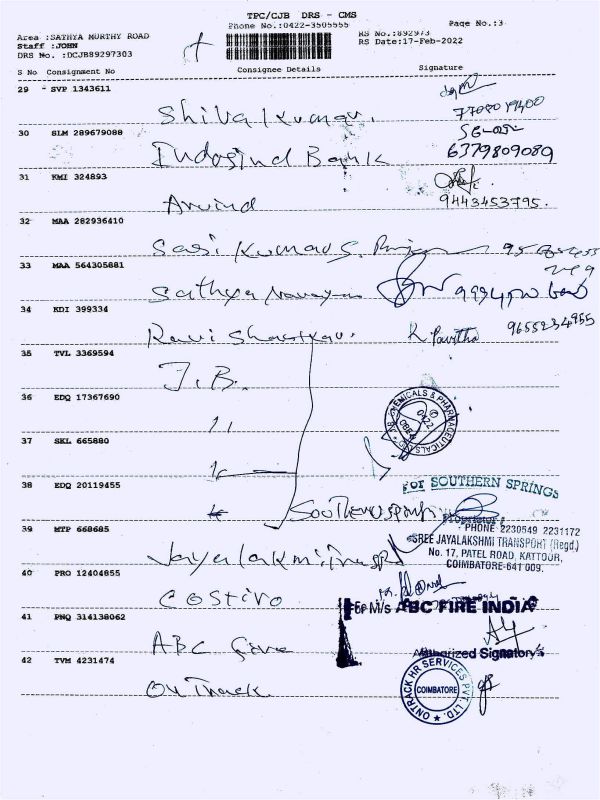 TPC/CJB DRS - CMS
Phone No.:0422-3505555
Page No.:3
Area :SATHYA MURTHY ROAD
RS No.:892973
Staff :JOHN
RS Date:17-Feb-2022
DRS No. :DCJB89297303
S No Consignment No Consignee Details Signature
29 SVP 1343611
Shiva Kumar.
30 SLM 289679088
Indosind Bank 6379809089
31 KMI 324893
Arvind 9443453795.
32 MAA 282936410
Sasi Kumar S.
33 MAA 564305881
Sathya Narayan
34 KDI 399334
Ravi Shankar. K. Pavitha 9655234955
35 TVL 3369594
J.B.
36 EDQ 17367690
CHEMICALS & PHARMACEUTICALS
0422
37 SKL 665880
38 EDQ 20119455
For SOUTHERN SPRINGS
Proprietor
39 MTP 668685
PHONE 2230549 2231172
SREE JAYALAKSHMI TRANSPORT (Regd.)
No. 17, PATEL ROAD, KATTOOR,
COIMBATORE-641 009.
40 PRO 12404855
Costivo
For M/s ABC FIRE INDIA
41 PNQ 314138062
ABC fire
Authorized Signatory
42 TVM 4231474
Ontrack
ONTRACK HR SERVICES PVT. LTD.
COIMBATORE